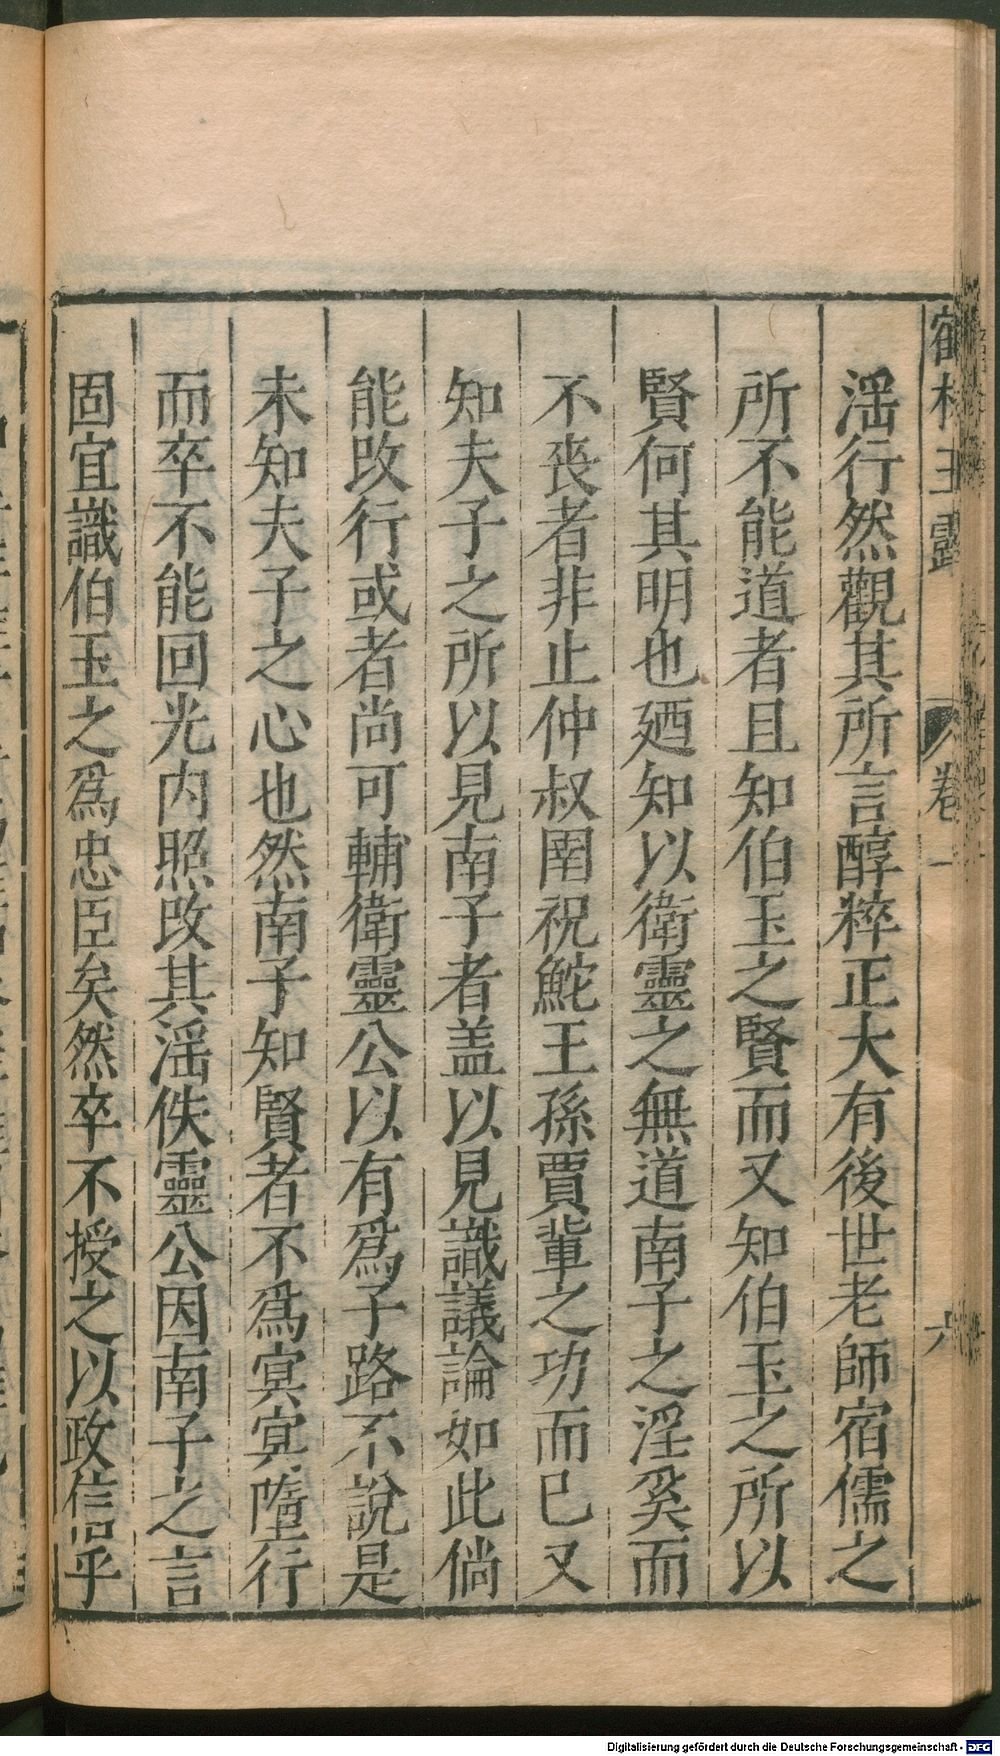 鶴林玉露 卷一 六
滛行然觀其所言醇粹正大有後世老師宿儒之
所不能道者且知伯玉之賢而又知伯玉之所以
賢何其明也廼知以衛靈之無道南子之淫奚而
不喪者非止仲叔圉祝鮀王孫賈軰之功而已又
知夫子之所以見南子者盖以見識議論如此倘
能改行或者尚可輔衛靈公以有爲子路不說是
未知夫子之心也然南子知賢者不爲冥冥墮行
而卒不能回光内照改其滛佚靈公因南子之言
固宜識伯玉之爲忠臣矣然卒不授之以政信乎
Digitalisierung gefördert durch die Deutsche Forschungsgemeinschaft - DFG